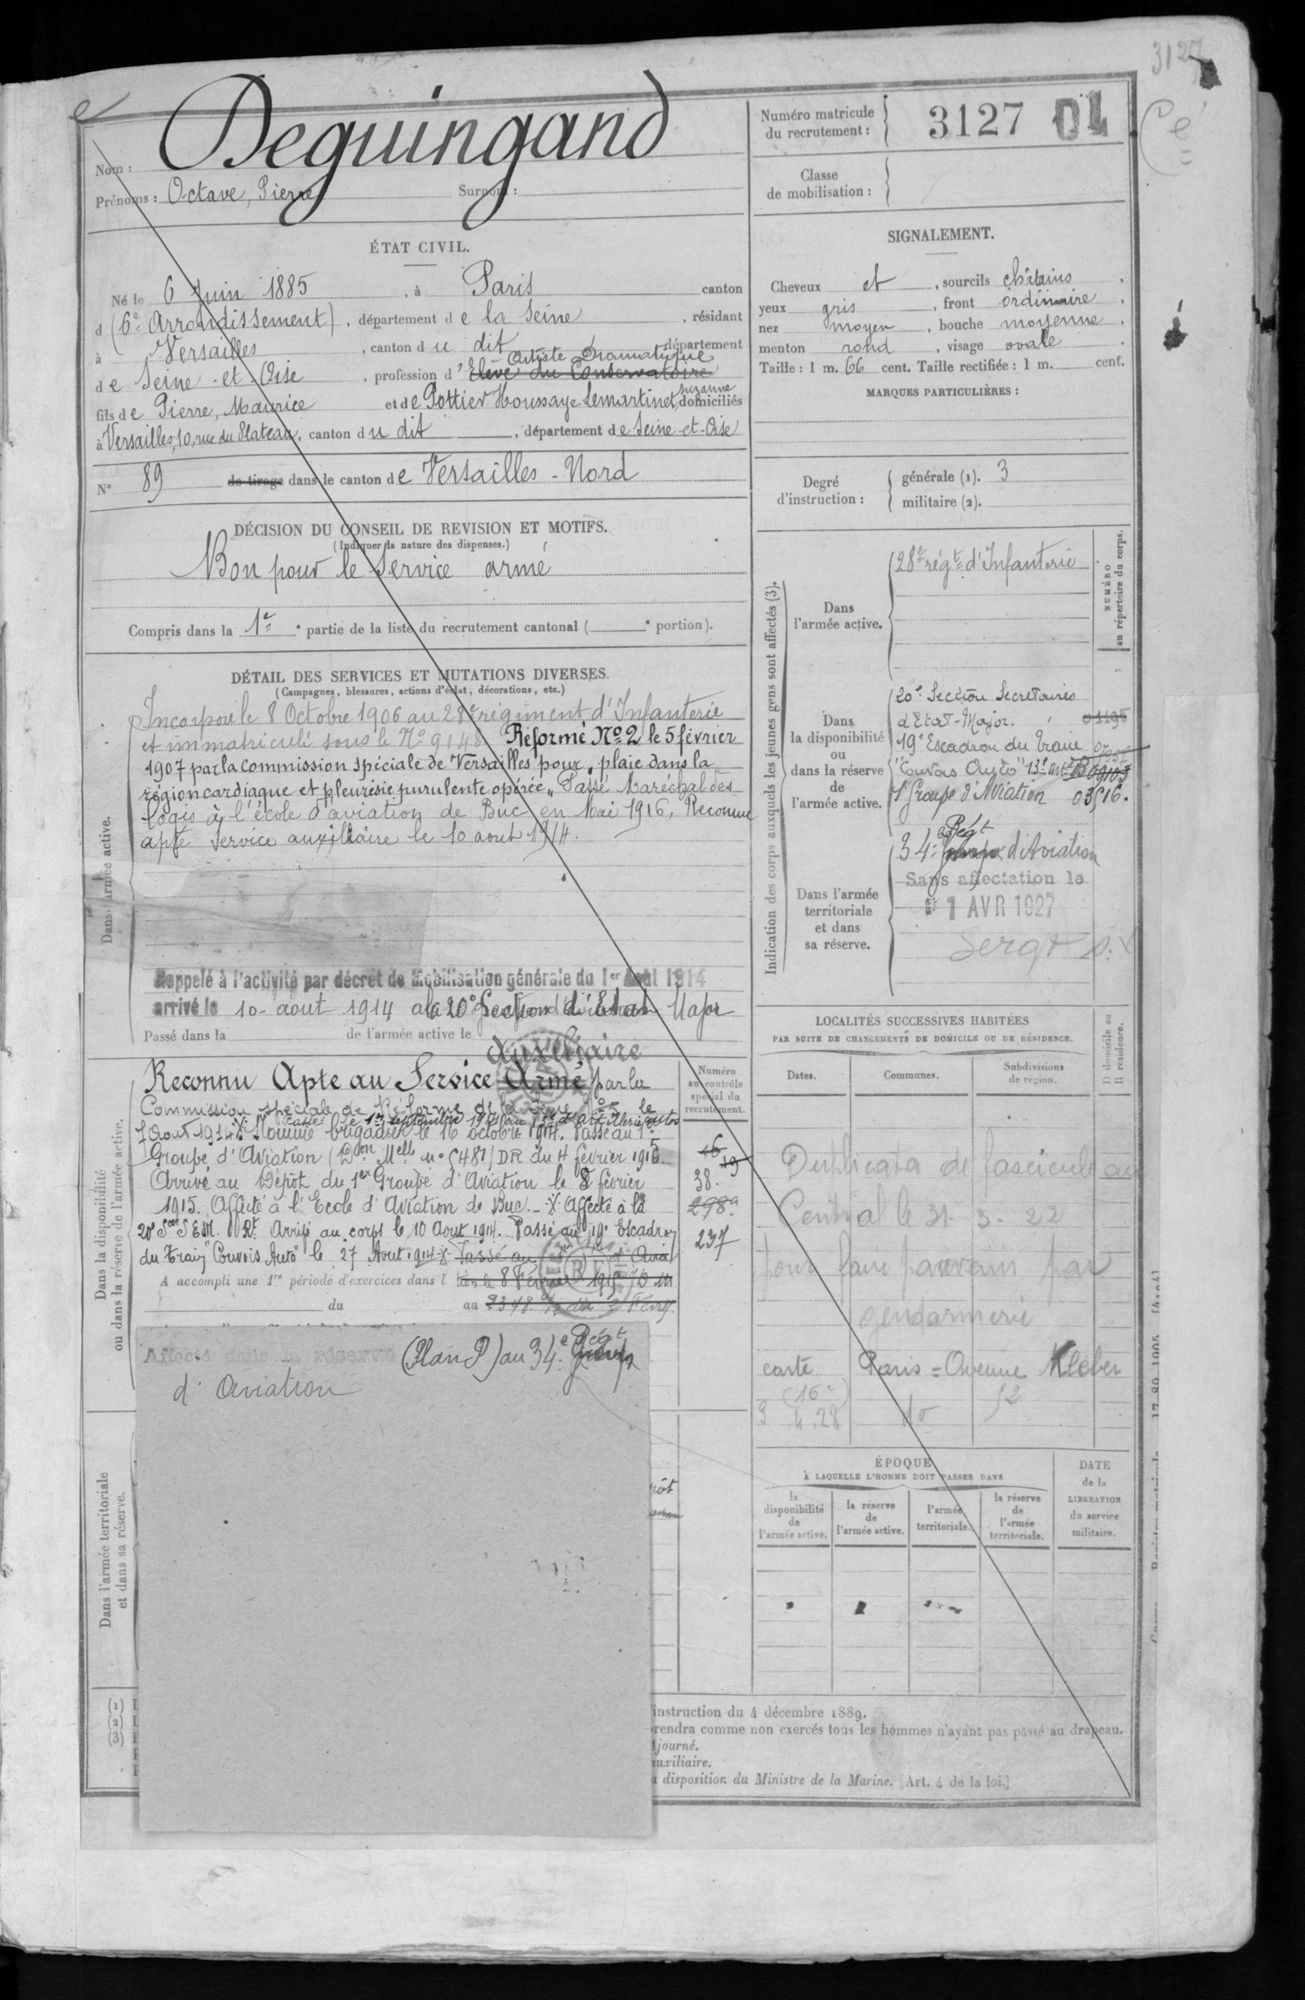 3127
Deguingand
Nom :
Prénoms : Octave, Pierre Surnom :
Numéro matricule
du recrutement :
3127 DL
Classe
de mobilisation :
ÉTAT CIVIL.
Né le 6 Juin 1885, à Paris canton
d (6e Arrondissement), département de la Seine, résidant
à Versailles, canton du dit département
Artiste Dramatique
de Seine-et-Oise, profession d'Elève du Conservatoire
fils de Pierre, Maurice et de Pottier Houssaye Lemartinet, Suzanne domiciliés
à Versailles, 10, rue du Plateau, canton du dit, département de Seine-et-Oise
N° 89 de tirage dans le canton de Versailles-Nord
SIGNALEMENT.
Cheveux et, sourcils châtains,
yeux gris, front ordinaire,
nez moyen, bouche moyenne,
menton rond, visage ovale.
Taille : 1 m. 66 cent. Taille rectifiée : 1 m. cent.
MARQUES PARTICULIÈRES :
Degré
d'instruction :
générale (1). 3
militaire (2).
DÉCISION DU CONSEIL DE REVISION ET MOTIFS.
(Indiquer la nature des dispenses.)
Bon pour le Service armé
Compris dans la 1re partie de la liste du recrutement cantonal ( e portion).
DÉTAIL DES SERVICES ET MUTATIONS DIVERSES.
(Campagnes, blessures, actions d'éclat, décorations, etc.)
Dans l'armée active.
Incorporé le 8 Octobre 1906 au 28e régiment d'Infanterie
et immatriculé sous le N° 9148. Réformé N° 2 le 5 février
1907 par la commission spéciale de Versailles pour "plaie dans la
région cardiaque et pleurésie purulente opérée". Passé Maréchal des
logis à l'école d'aviation de Buc en Mai 1916, Reconnu
apte Service auxiliaire le 10 aout 1914.
Rappelé à l'activité par décret de Mobilisation générale du 1er Août 1914
arrivé le 10 aout 1914 à la 20e Section d'Etat Major
Passé dans la de l'armée active le
Dans la disponibilité
ou dans la réserve de l'armée active.
Auxiliaire
Reconnu Apte au Service Armé par la
Commission spéciale de Réforme de la Seine le
Passé le 1er septembre 1914 au 13e d'artillerie
Aout 1914. Nommé brigadier le 16 octobre 1914. Passé au 1er
Groupe d'Aviation (Don Melle n° 6481/DR du 4 février 1915.
Arrivé au Dépôt du 1er Groupe d'Aviation le 8 février
1915. Affecté à l'Ecole d'Aviation de Buc. Affecté à la
Arrivé au corps le 10 Aout 1914. Passé au 19e Escadron
du train "Convois Auto" le 27 Aout 1914
A accompli une 1re période d'exercices dans l
du au
Affecté dans la réserve (Plan P) au 34e Régt
d'Aviation
Numéro
au contrôle
spécial du
recrutement.
16
19
38.
298
237
Dans l'armée territoriale
et dans sa réserve.
(1)
(2)
(3)
instruction du 4 décembre 1889.
rendra comme non exercés tous les hommes n'ayant pas passé au drapeau.
journé.
uxiliaire.
a disposition du Ministre de la Marine. (Art. 4 de la loi.)
Indication des corps auxquels les jeunes gens sont affectés (3).
NUMÉRO
au répertoire du corps.
Dans
l'armée active.
28e régt d'Infanterie
Dans
la disponibilité
ou
dans la réserve
de
l'armée active.
20e Section Secrétaires
d'Etat-Major.
19e Escadron du Train
"Convois Auto" 13e art
1er Groupe d'Aviation 03516.
Dans l'armée
territoriale
et dans
sa réserve.
34e Régt d'Aviation
Sans affectation le
1 AVR 1927
Sergt
LOCALITÉS SUCCESSIVES HABITÉES
PAR SUITE DE CHANGEMENTS DE DOMICILE OU DE RÉSIDENCE.
Dates.
Communes.
Subdivisions
de région.
D domicile ou
R résidence.
Duplicata de fascicule au
Central le 31-3-22
pour faire parvenir par
gendarmerie
carte Paris = Avenue Kléber
(16e) 12
4.28 do
ÉPOQUE
À LAQUELLE L'HOMME DOIT PASSER DANS
la
disponibilité
de
l'armée active.
la réserve
de
l'armée active.
l'armée
territoriale.
la réserve
de
l'armée
territoriale.
DATE
de la
LIBÉRATION
du service
militaire.